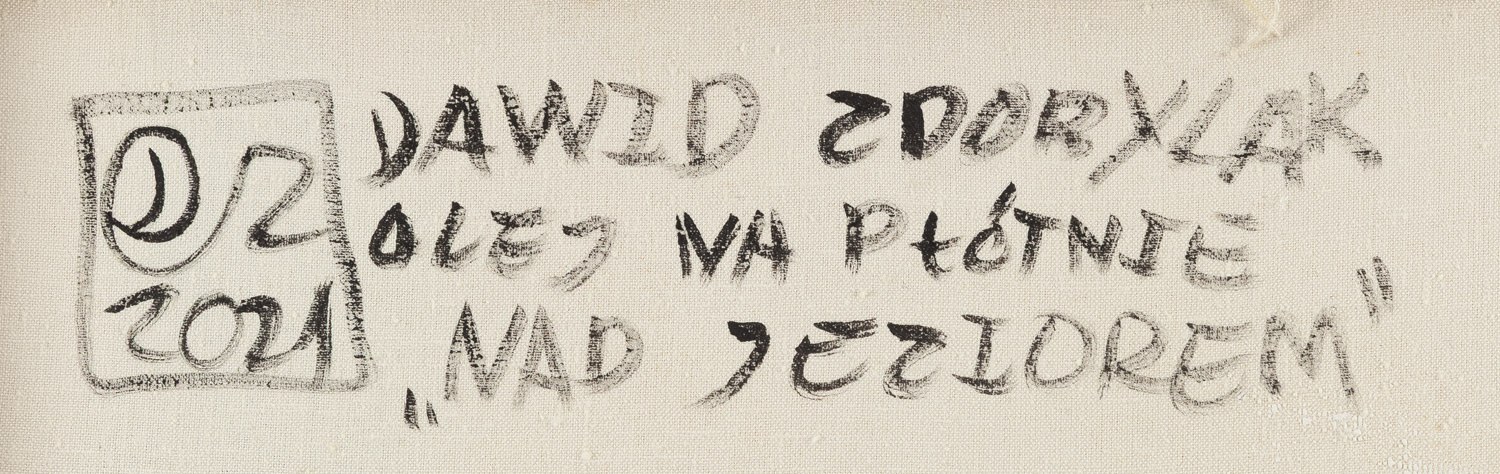 DZ
2021
DAWID ZDORYLAK
OLEJ NA PŁÓTNIE
„NAD JEZIOREM”